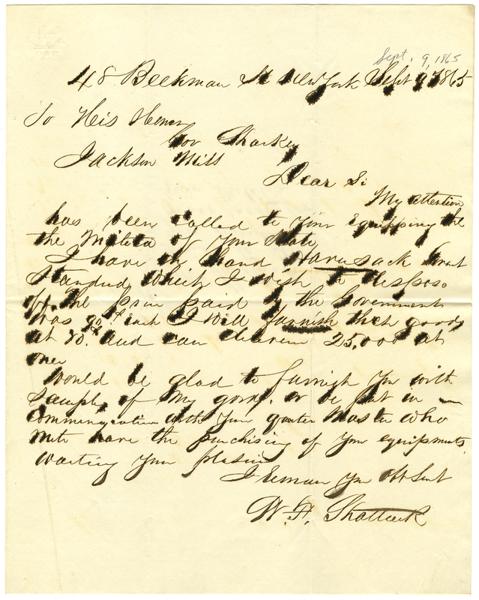 Sept. 9, 1865
48 Beekman St New York Sept 9 1865
To His Honor
Gov Sharkey
Jackson Miss
Dear Si
My attention
has been called to your equipping the
the Militia of your State,
I have on hand Haversack
Standard, which I wish to dispose
of, the price paid by the Government
was each I will furnish these goods
at and can deliver 25,000 at
once
Would be glad to furnish you with
sample of my goods, or be put in
communication with your quarter Master who
may have the purchasing of your equipments,
waiting your pleasure
I remain you Obt Sert
W. A. Shattuck